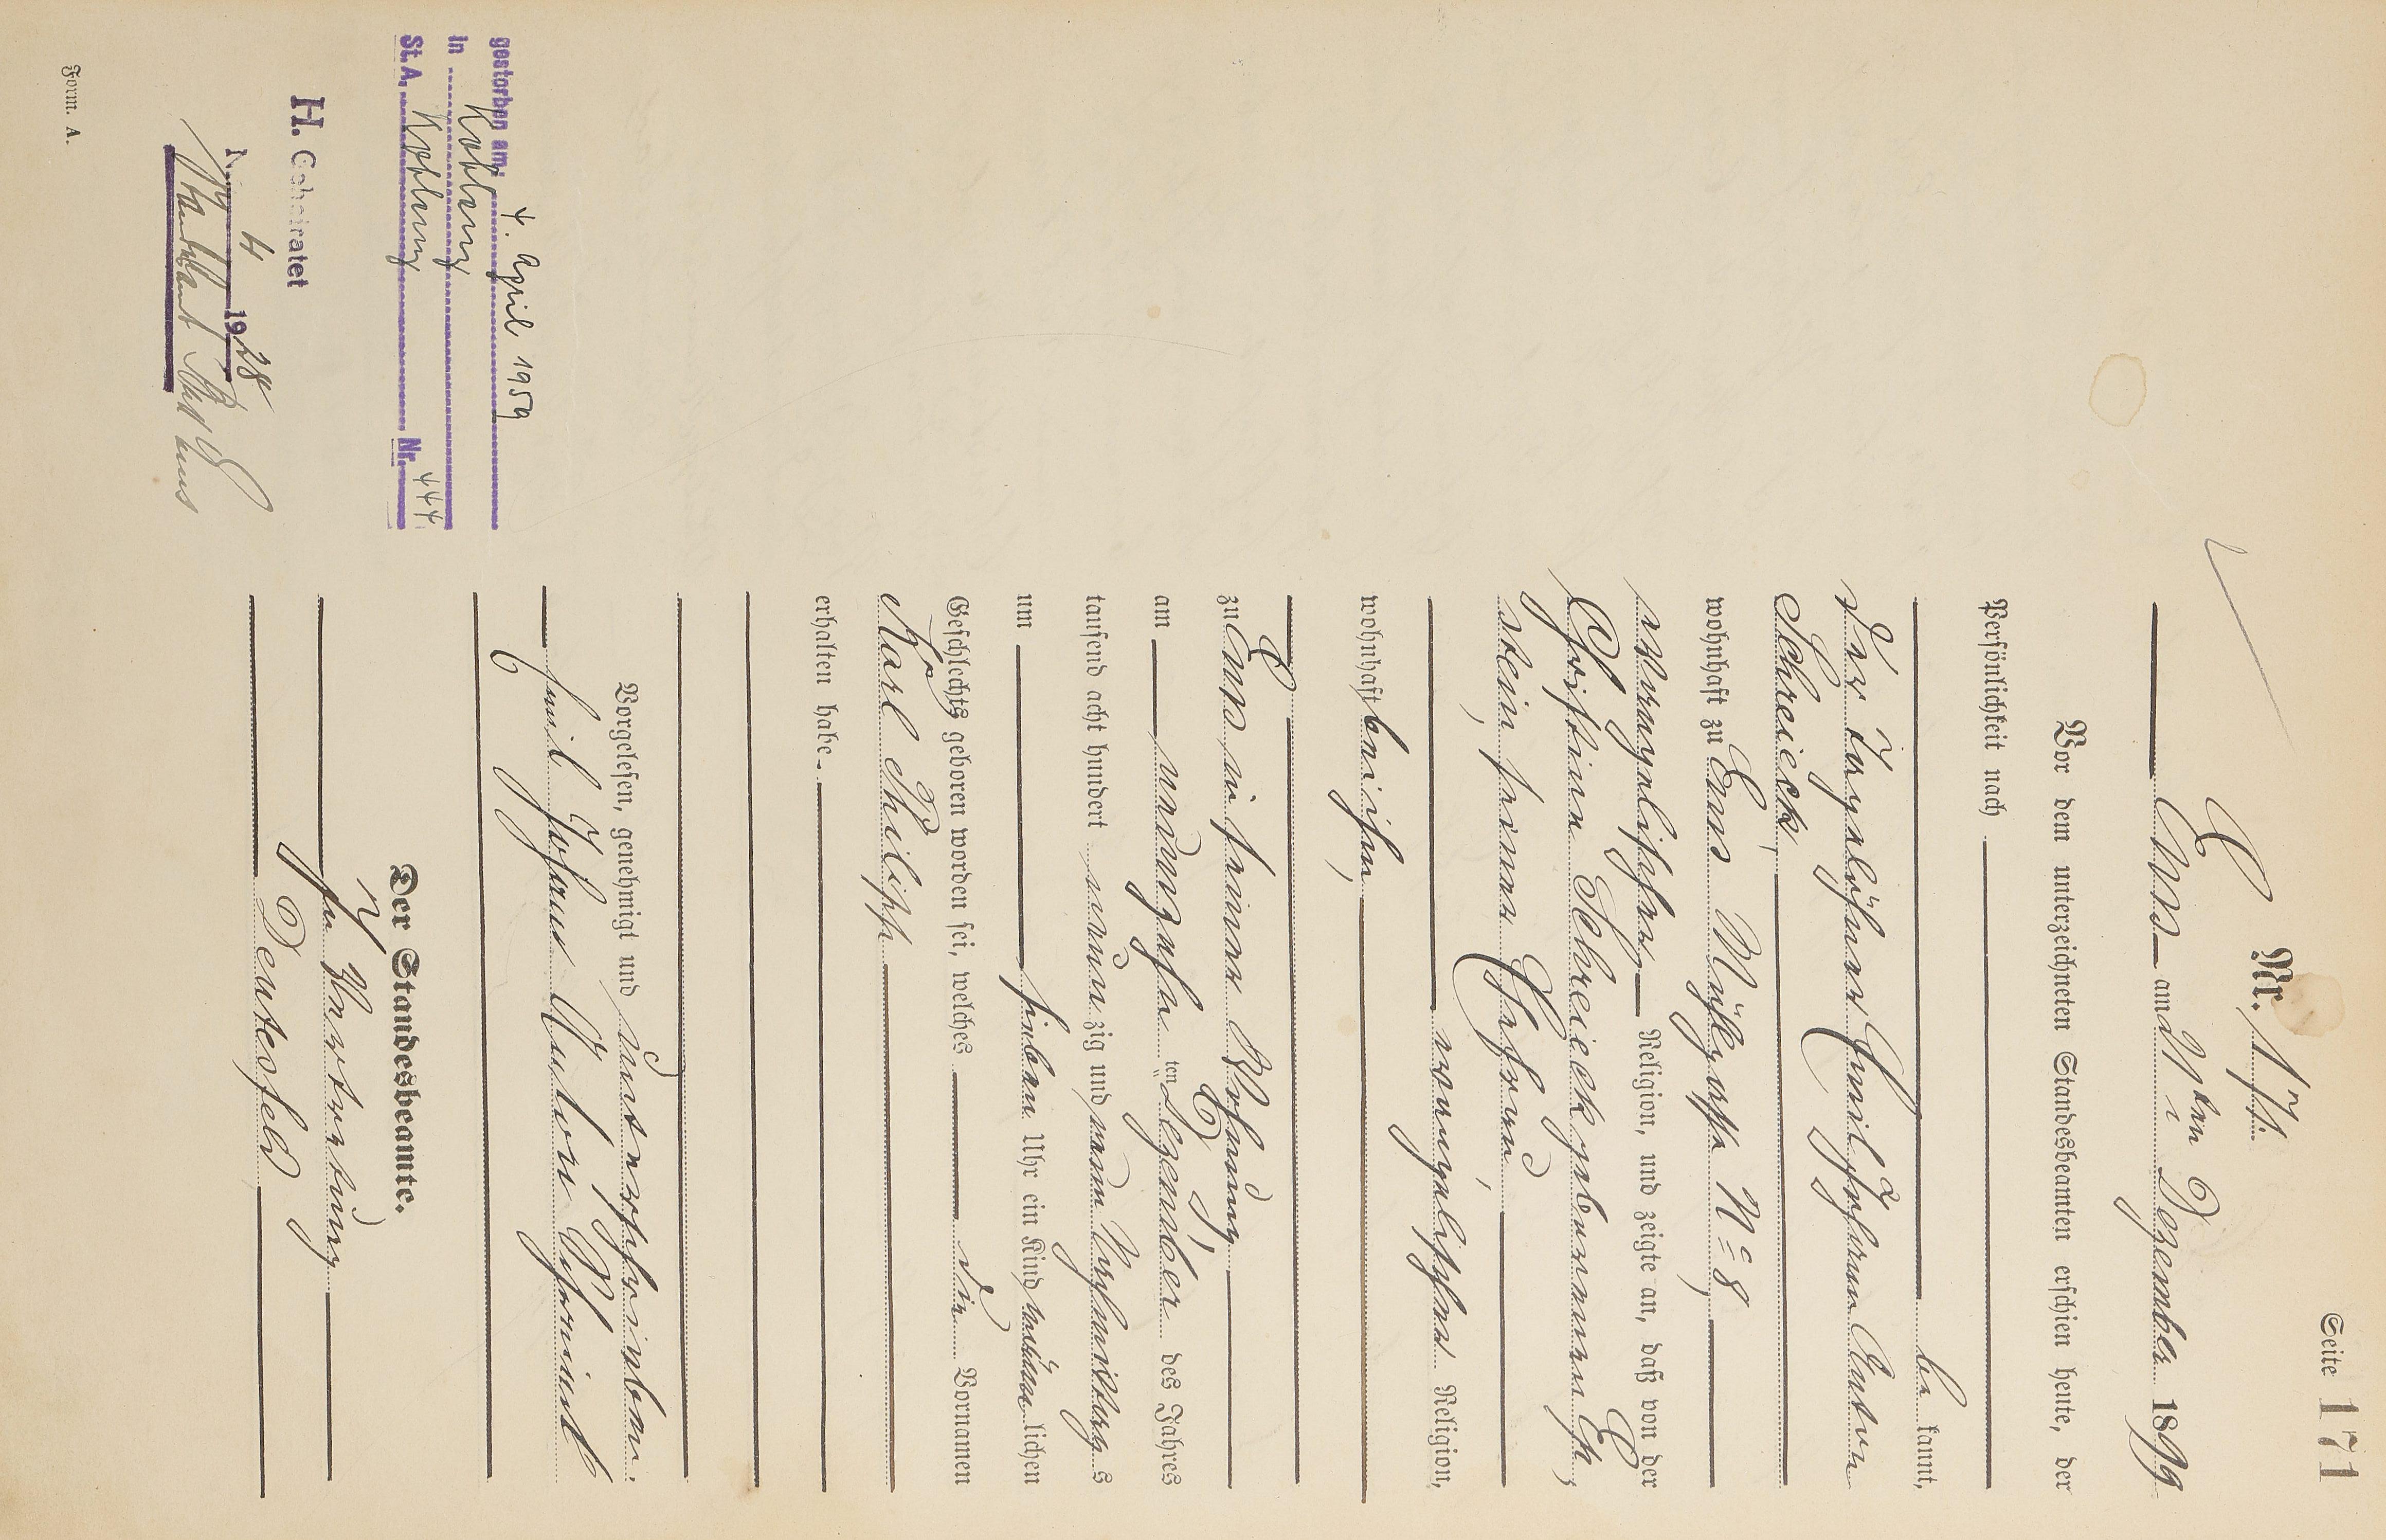 Seite 171
Nr. 171.
Ems am 21ten Dezember 1899
Vor dem unterzeichneten Standesbeamten erschien heute, der
Persönlichkeit nach
be kannt,
der Tagelöhner Emil Johann Anton
Schreieck,
wohnhaft zu Ems
evangelischer Religion, und zeigte an, daß von der
Christine Schreieck geborenen
seiner Ehefrau,
evangelischer Religion,
wohnhaft bei ihm,
zu Ems in seiner Wohnung,
am neunzehn ten Dezember des Jahres
tausend acht hundert neun zig und neun Nachmittag s
um sieben Uhr ein Kind männ lichen
Geschlechts geboren worden sei, welches die Vornamen
Karl Philipp
erhalten habe.
Vorgelesen, genehmigt und unterschrieben.
Emil Johann Anton Schreieck
Der Standesbeamte.
In Vertretung
Deutesfeld
gestorben am 4. April 1959
in Koblenz
St. A. Koblenz Nr. 444
H. Geheiratet
Nr. 4 1928
Standesamt Bad Ems
Form. A.